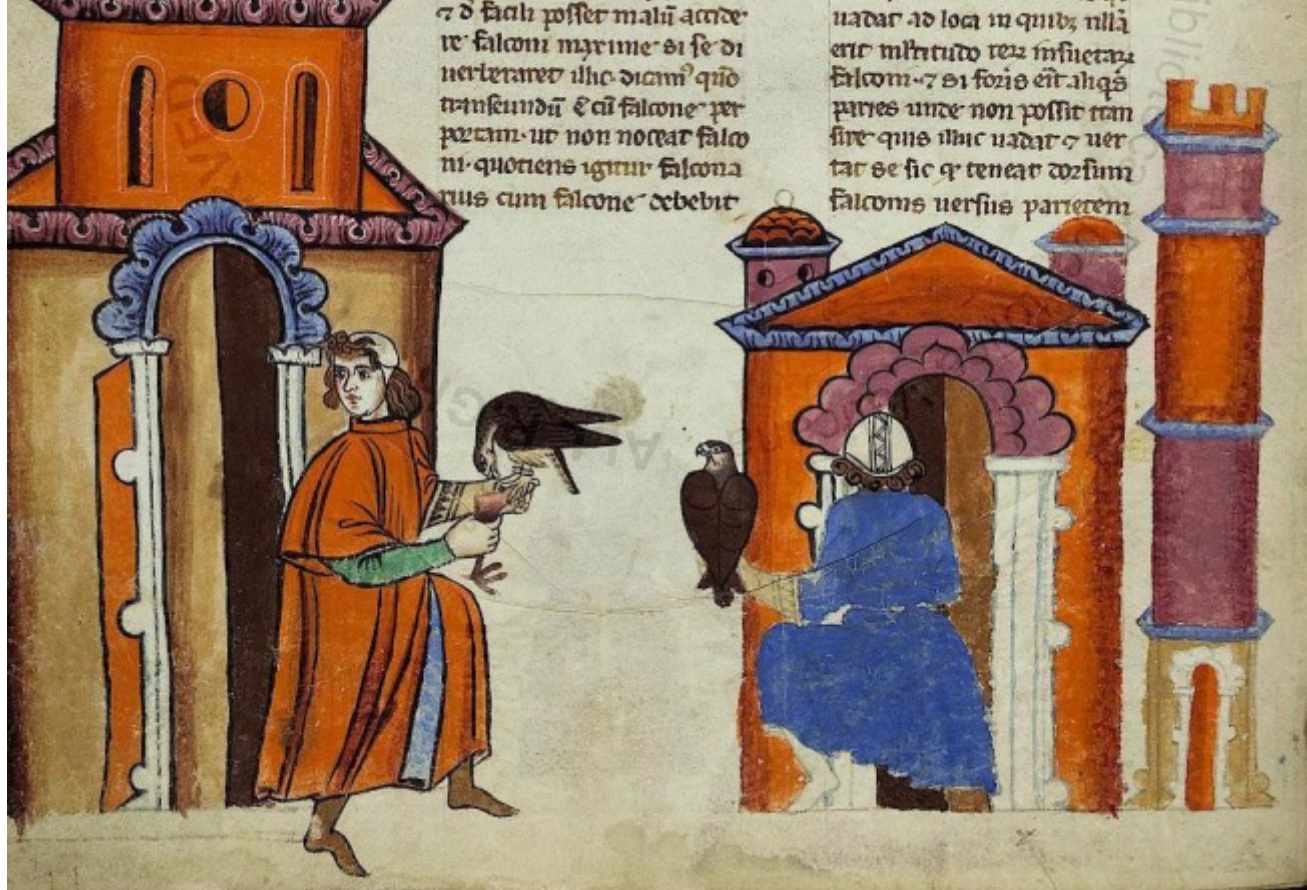 ⁊ d̄ facili posset malū accide
re falconi maxime si se di
uerberaret illic. dicamꝰ qūo
transeundū ē cū falcone per
portam. ut non noceat falco
ni. quotiens igitur falcona
rius cum falcone debebit
uadat ad loca in quibꝫ nllā
erit mltitudo reꝝ insuetaꝝ
falconi. ⁊ si foris eīt aliqͥs
paries unde non possit tran
sire quis illuc uadat ⁊ uer
tat se sic ꝙ teneat dorsum
falconis uersus parietem